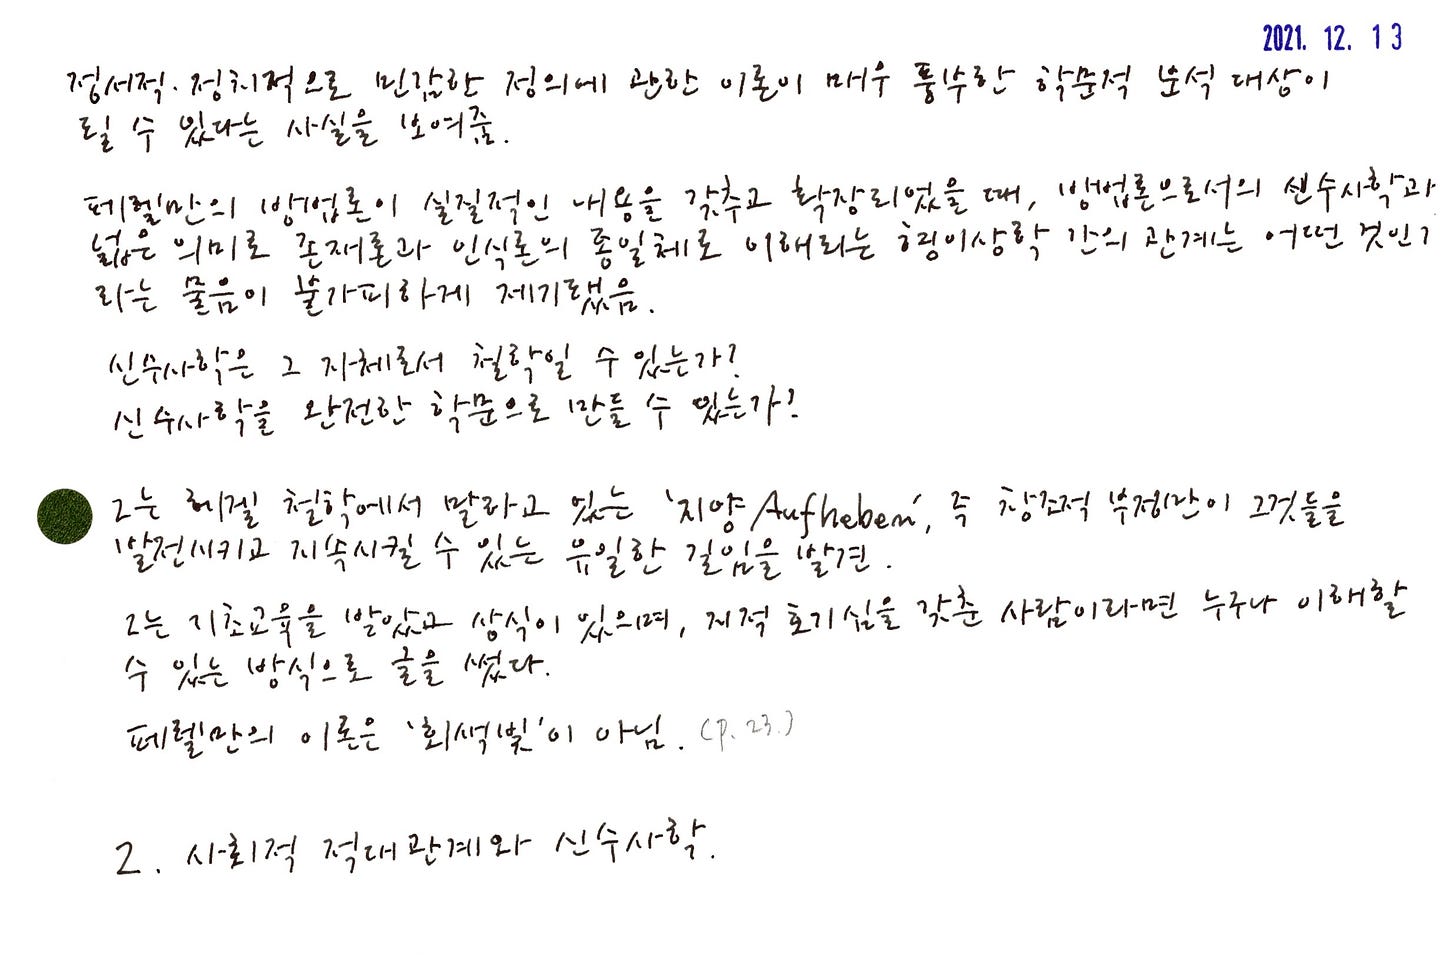 2021. 12. 13
정서적·정치적으로 민감한 정의에 관한 이론이 매우 풍부한 학문적 분석 대상이
될 수 있다는 사실을 보여줌.
페렐만의 방법론이 실질적인 내용을 갖추고 확장되었을 때, 방법론으로서의 신수사학과
넓은 의미로 존재론과 인식론의 총일체로 이해되는 형이상학 간의 관계는 어떤 것인가
라는 물음이 불가피하게 제기됐음.
신수사학은 그 자체로서 철학일 수 있는가?
신수사학을 완전한 학문으로 만들 수 있는가?
그는 헤겔 철학에서 말하고 있는 '지양 Aufheben', 즉 창조적 부정만이 그것들을
발전시키고 지속시킬 수 있는 유일한 길임을 발견.
그는 기초교육을 받았고 상식이 있으며, 지적 호기심을 갖춘 사람이라면 누구나 이해할
수 있는 방식으로 글을 썼다.
페렐만의 이론은 '회색빛'이 아님. (p. 23.)
2. 사회적 적대관계와 신수사학.